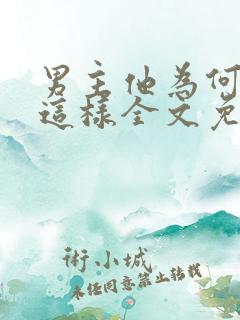 男主他為何
這樣全文免
術小城
未经同意禁止转载